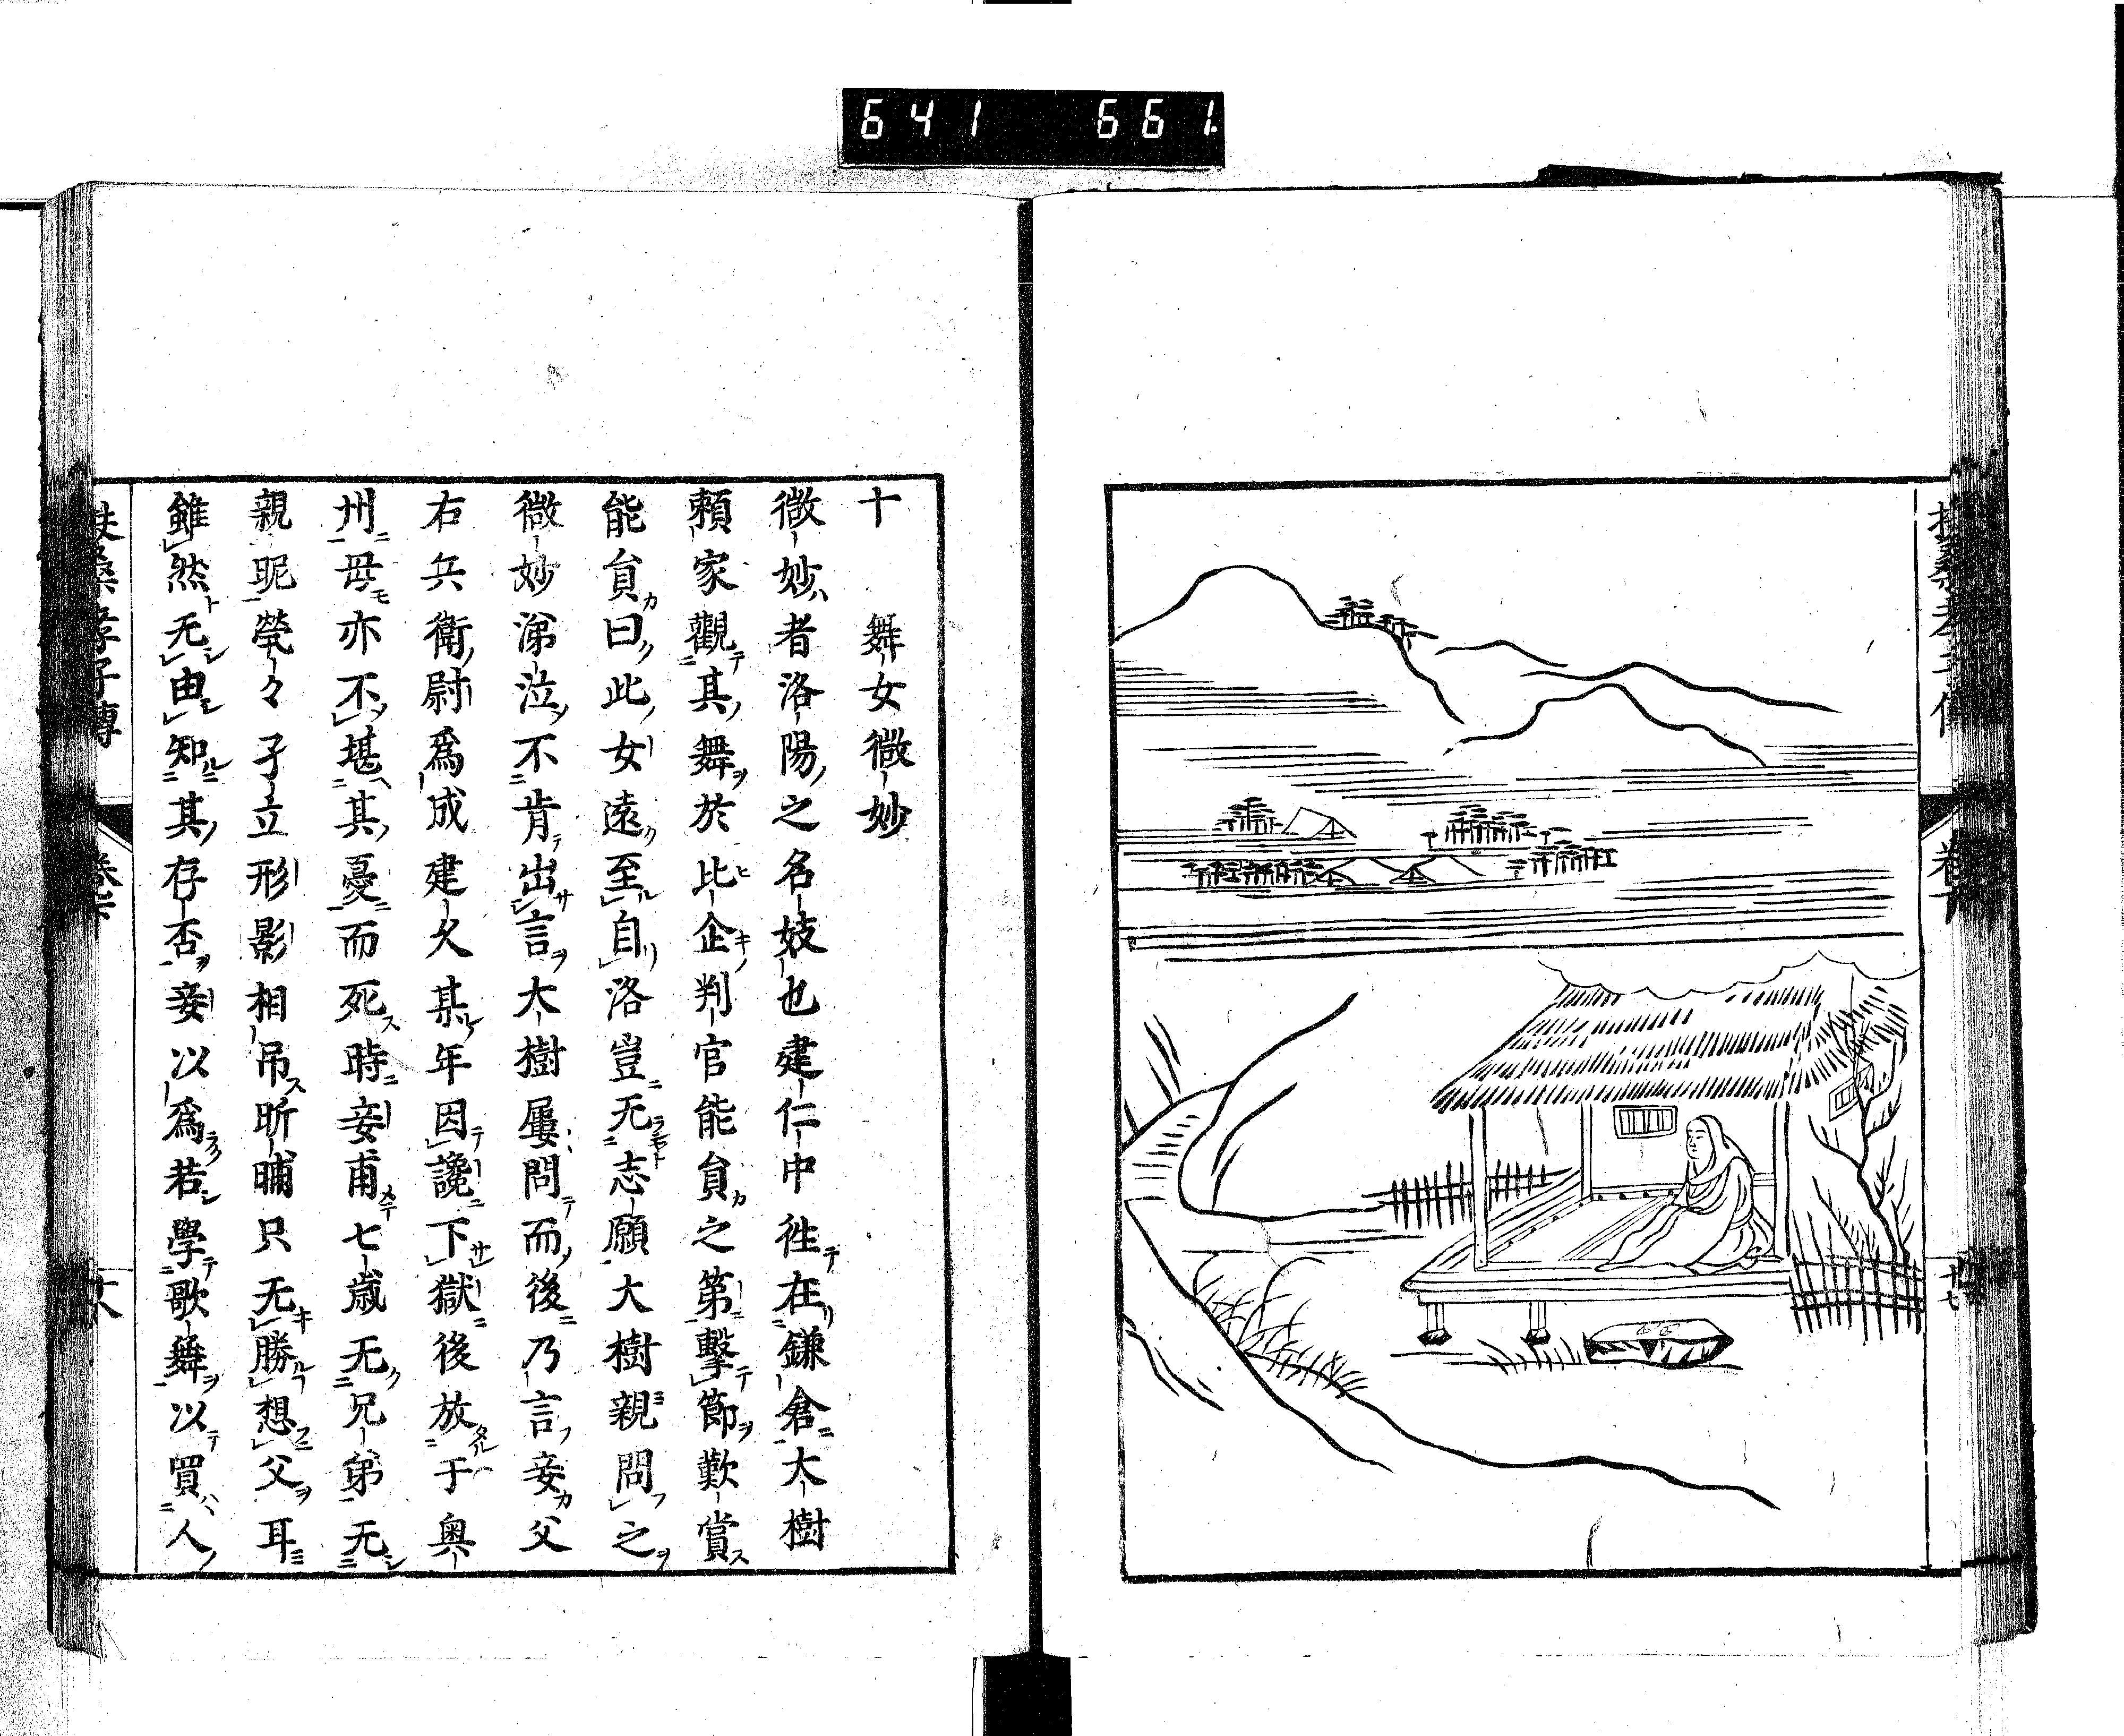 641 661
十 舞女微妙
微妙者洛陽之名妓也建仁中徃在鎌倉大樹
頼家觀其舞於比企判官能員之第擊節歎賞
能員曰此女遠至自洛豈无志願大樹親問之
微妙涕泣不肯出言大樹屢問而後乃言妾父
右兵衛尉爲成建久某年因讒下獄後放于奥
州母亦不堪其憂而死時妾甫七歳无兄弟无
親昵煢々孑立形影相吊昕晡只无勝想父耳
雖然无由知其存否妾以爲若學歌舞以買人
扶桑孝子傳